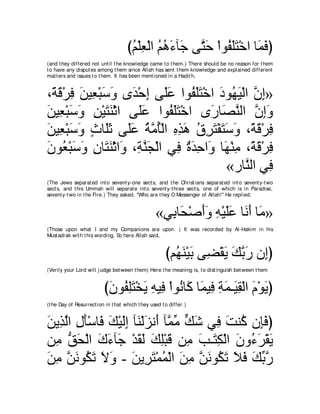 (فَمَا اخْتَلَفُواْ حَتَّى جَآءَهُمُ الْعِلْمُ)
(and they differed not until the knowledge came to them.) There should be no reason for them to have any disputes among them since Allah has sent them knowledge and explained different matters and issues to them. It has been mentioned in a Hadith,
«إِنَّ الْيَهُودَ اخْتَلَفُوا عَلَى إِحْدَى وَسَبْعِينَ فِرْقَةً،
وَإِنَّ النَّصَارَى اخْتَلَفُوا عَلَى اثْنَتَيْنِ وَسَبْعِينَ
فِرْقَةً، وَسَتَفْتَرِقُ هَذِهِ الْأُمَّةُ عَلَى ثَلَاثٍ وَسَبْعِينَ
فِرْقَةً، مِنْهَا وَاحِدَةٌ فِي الْجَنَّةِ، وَاثْنَتَانِ وَسَبْعُونَ
فِي النَّار»
(The Jews separated into seventy-one sects, and the Christians separated into seventy-two sects, and this Ummah will separate into seventy-three sects, one of which is in Paradise, seventy-two in the Fire.) They asked, "Who are they O Messenger of Allah' He replied:
«مَا أَنَا عَلَيْهِ وَأَصْحَابِي»
(Those upon what I and my Companions are upon. ) It was recorded by Al-Hakim in his Mustadrak with this wording. So here Allah said,
(إِنَّ رَبَّكَ يَقْضِى بَيْنَهُمْ)
(Verily your Lord will judge between them) Here the meaning is, to distinguish between them
(يَوْمَ الْقِيَـمَةِ فِيمَا كَانُواْ فِيهِ يَخْتَلِفُونَ)
(the Day of Resurrection in that which they used to differ.)
(فَإِن كُنتَ فِي شَكٍّ مِّمَّآ أَنزَلْنَآ إِلَيْكَ فَاسْأَلِ الَّذِينَ
يَقْرَءُونَ الْكِتَـبَ مِن قَبْلِكَ لَقَدْ جَآءَكَ الْحَقُّ مِن
رَّبِّكَ فَلاَ تَكُونَنَّ مِنَ الْمُمْتَرِينَ - وَلاَ تَكُونَنَّ مِنَ